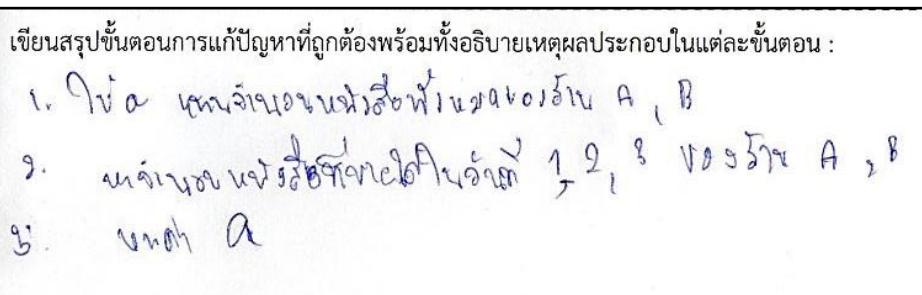 เขียนสรุปขั้นตอนการแก้ปัญหาที่ถูกต้องพร้อมทั้งอธิบายเหตุผลประกอบในแต่ละขั้นตอน :
1. ให้ a แทนจำนวนหนังสือทั้งหมดของร้าน A , B
2. หาจำนวนหนังสือที่ขายได้ในวันที่ 1, 2, 3 ของร้าน A , B
3. หาค่า a